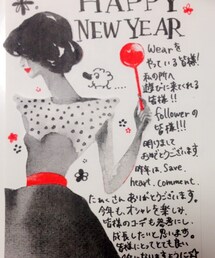 HAPPY
NEW YEAR
wearを
やっている皆様!
私の所へ
遊びに来てくれる
皆様!!
followerの
皆様!!!
明けまして
おめでとうございます
昨年は、save.
heart. comment.
たぁくさん ありがとうございます。
今年も、オシャレを楽しみ
皆様のコーデも参考にし
成長したいと思います。
皆様にとってとても良い